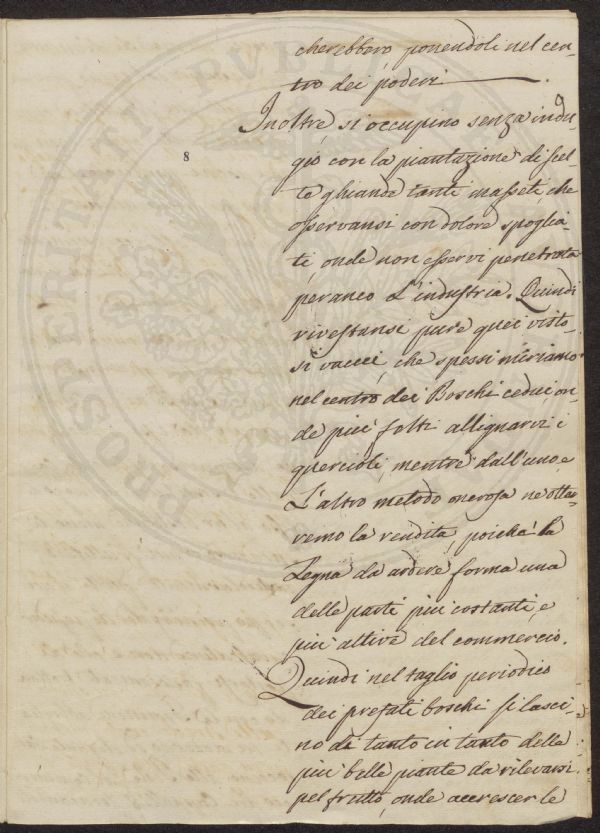 cherebbero ponendoli nel cen-
tro dei poderi.
Inoltre si occupino senza indu-
8
gio con la piantazione di scel-
te ghiande tanti masseti, che
osservansi con dolore spoglia-
ti, onde non esservi penetrata
peranco l'industria. Quindi
rivestansi pure quei visto-
si vacui, che spessi miriamo
nel centro dei Boschi cedui on-
de più folti allignarvi i
quercioli, mentre dall'uno, e
l'altro metodo onerosa ne otter-
remo la rendita, poichè la
Legna da ardere forma una
delle parti più costanti, e
più attive del commercio.
Quindi nel taglio periodico
dei prefati boschi si lasci-
no di tanto in tanto delle
più belle piante da rilevarsi
pel frutto, onde accrescer le
PROSPERITATI PVBLICAE